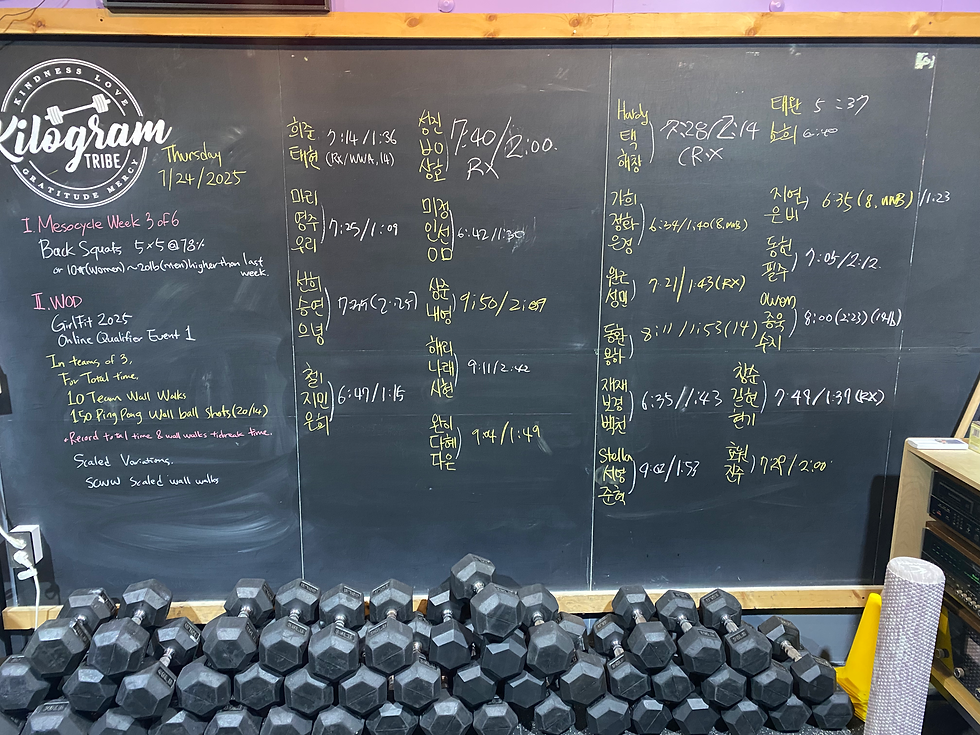 KINDNESS LOVE
Kilogram
TRIBE
GRATITUDE MERCY
Thursday
7/24/2025
I. Mesocycle Week 3 of 6
Back Squats 5x5 @ 78%
or 10#(women) ~ 20lb(men) higher than last
week.
II. WOD
GirlFit 2025
Online Qualifier Event 1
In teams of 3,
For Total time,
10 Team Wall Walks
150 Ping Pong Wall ball shots (20/14)
* Record total time & wall walks tiebreak time.
Scaled Variations.
SCWW Scaled wall walks
희준
태현
7:14/1:36
(RX/WWA, 14)
마리
영주
우리
7:25/1:09
산희
승연
으녕
철
지민
은희
6:49/1:15
성진
상호
7:40/2:00.
RX
미정
인선
6:42/
상준
내영
9:50/2:07
해리
나래
시현
9:11/2:42
완히
다혜
다은
9:04/1:49
Hardy
택
해창
7:28/2:14
(RX
가희
정화
은경
6:34/1:40(8.WB)
완근
성민
7:21/1:43(RX)
동완
용하
8:11/1:53(14)
재재
보경
백진
6:35/1:43
Stella
서영
준혁
9:02/1:53
태완 5:37
6:40
지연
은비
6:35(8.WB)/1:23
동현
필주
7:05/2:12.
Owen
종욱
수지
8:00(2:23)(14lb)
창순
길현
현기
7:48/1:37(RX)
효원
진주
7:29/2:00